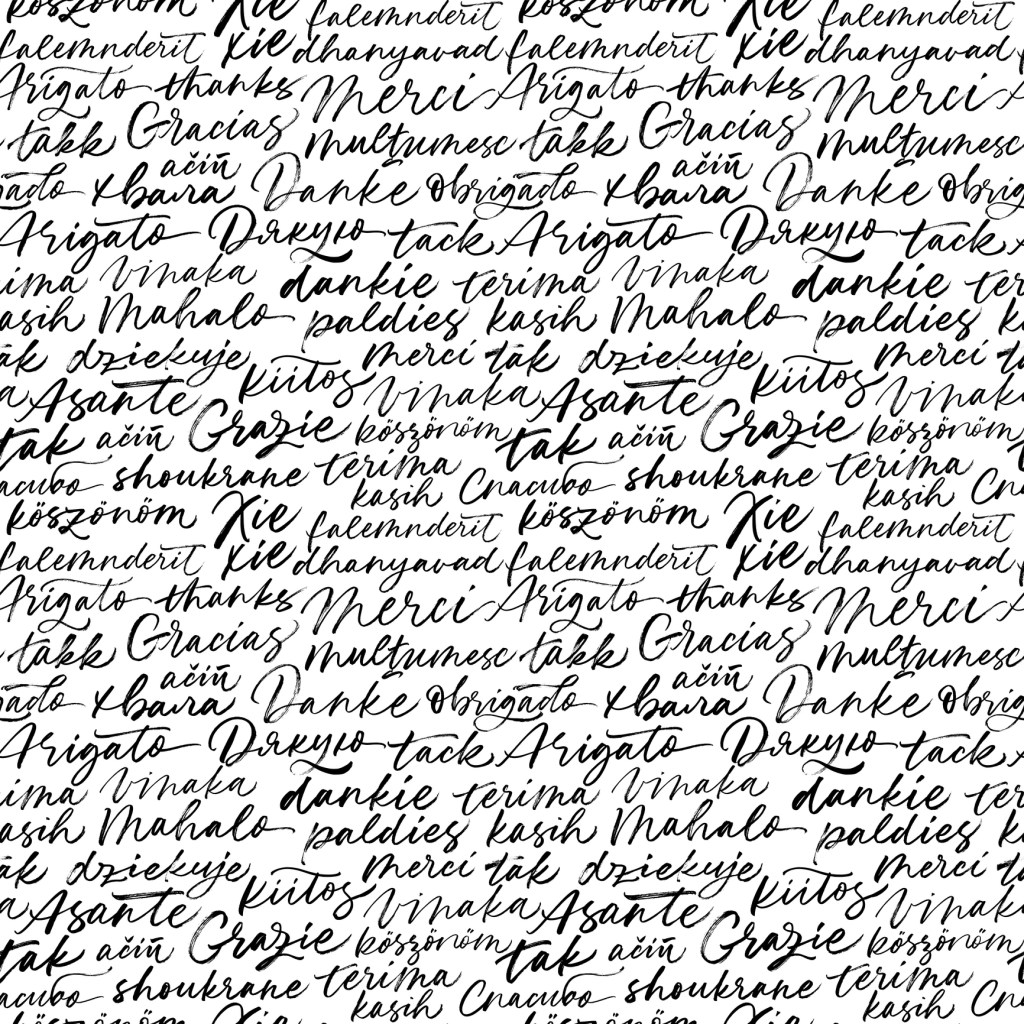 köszönöm Xie falemnderit köszönöm Xie falemnderit
falemnderit xie dhanyavad falemnderit xie dhanyavad
Arigato thanks Merci Arigato thanks Merci
takk Gracias mulţumesc takk Gracias mulţumesc
ačiū ačiū
gado хвала Danke Obrigado хвала Danke Obrig
Arigato Дякую tack Arigato Дякую tack
ima vinaka dankie terima vinaka dankie ter
asih Mahalo paldies kasih Mahalo paldies k
ak dziekuje merci tak dziekuje merci t
a Asante Kiitos vinaka Asante Kiitos vinak
tak ačiū Grazie köszönöm tak ačiū Grazie köszönöm
асибо shoukrane terima kasih Спасибо shoukrane terima kasih Сп
köszönöm Xie falemnderit köszönöm Xie falemnderit
falemnderit xie dhanyavad falemnderit xie dhanyavad
Arigato thanks Merci Arigato thanks Merci
takk Gracias mulţumesc takk Gracias mulţumesc
ačiū ačiū
gado хвала Danke Obrigado хвала Danke Obrig
Arigato Дякую tack Arigato Дякую tack
ima vinaka dankie terima vinaka dankie ter
asih Mahalo paldies kasih Mahalo paldies k
ak dziekuje merci tak dziekuje merci t
a Asante Kiitos vinaka Asante Kiitos vinak
tak ačiū Grazie köszönöm tak ačiū Grazie köszönöm
асибо shoukrane terima kasih Спасибо shoukrane terima kasih Сп